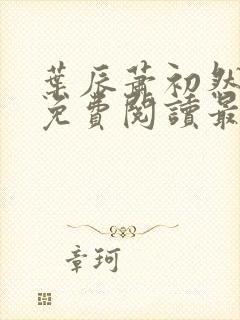 葉辰蕭初然
免費閱讀最
章珂